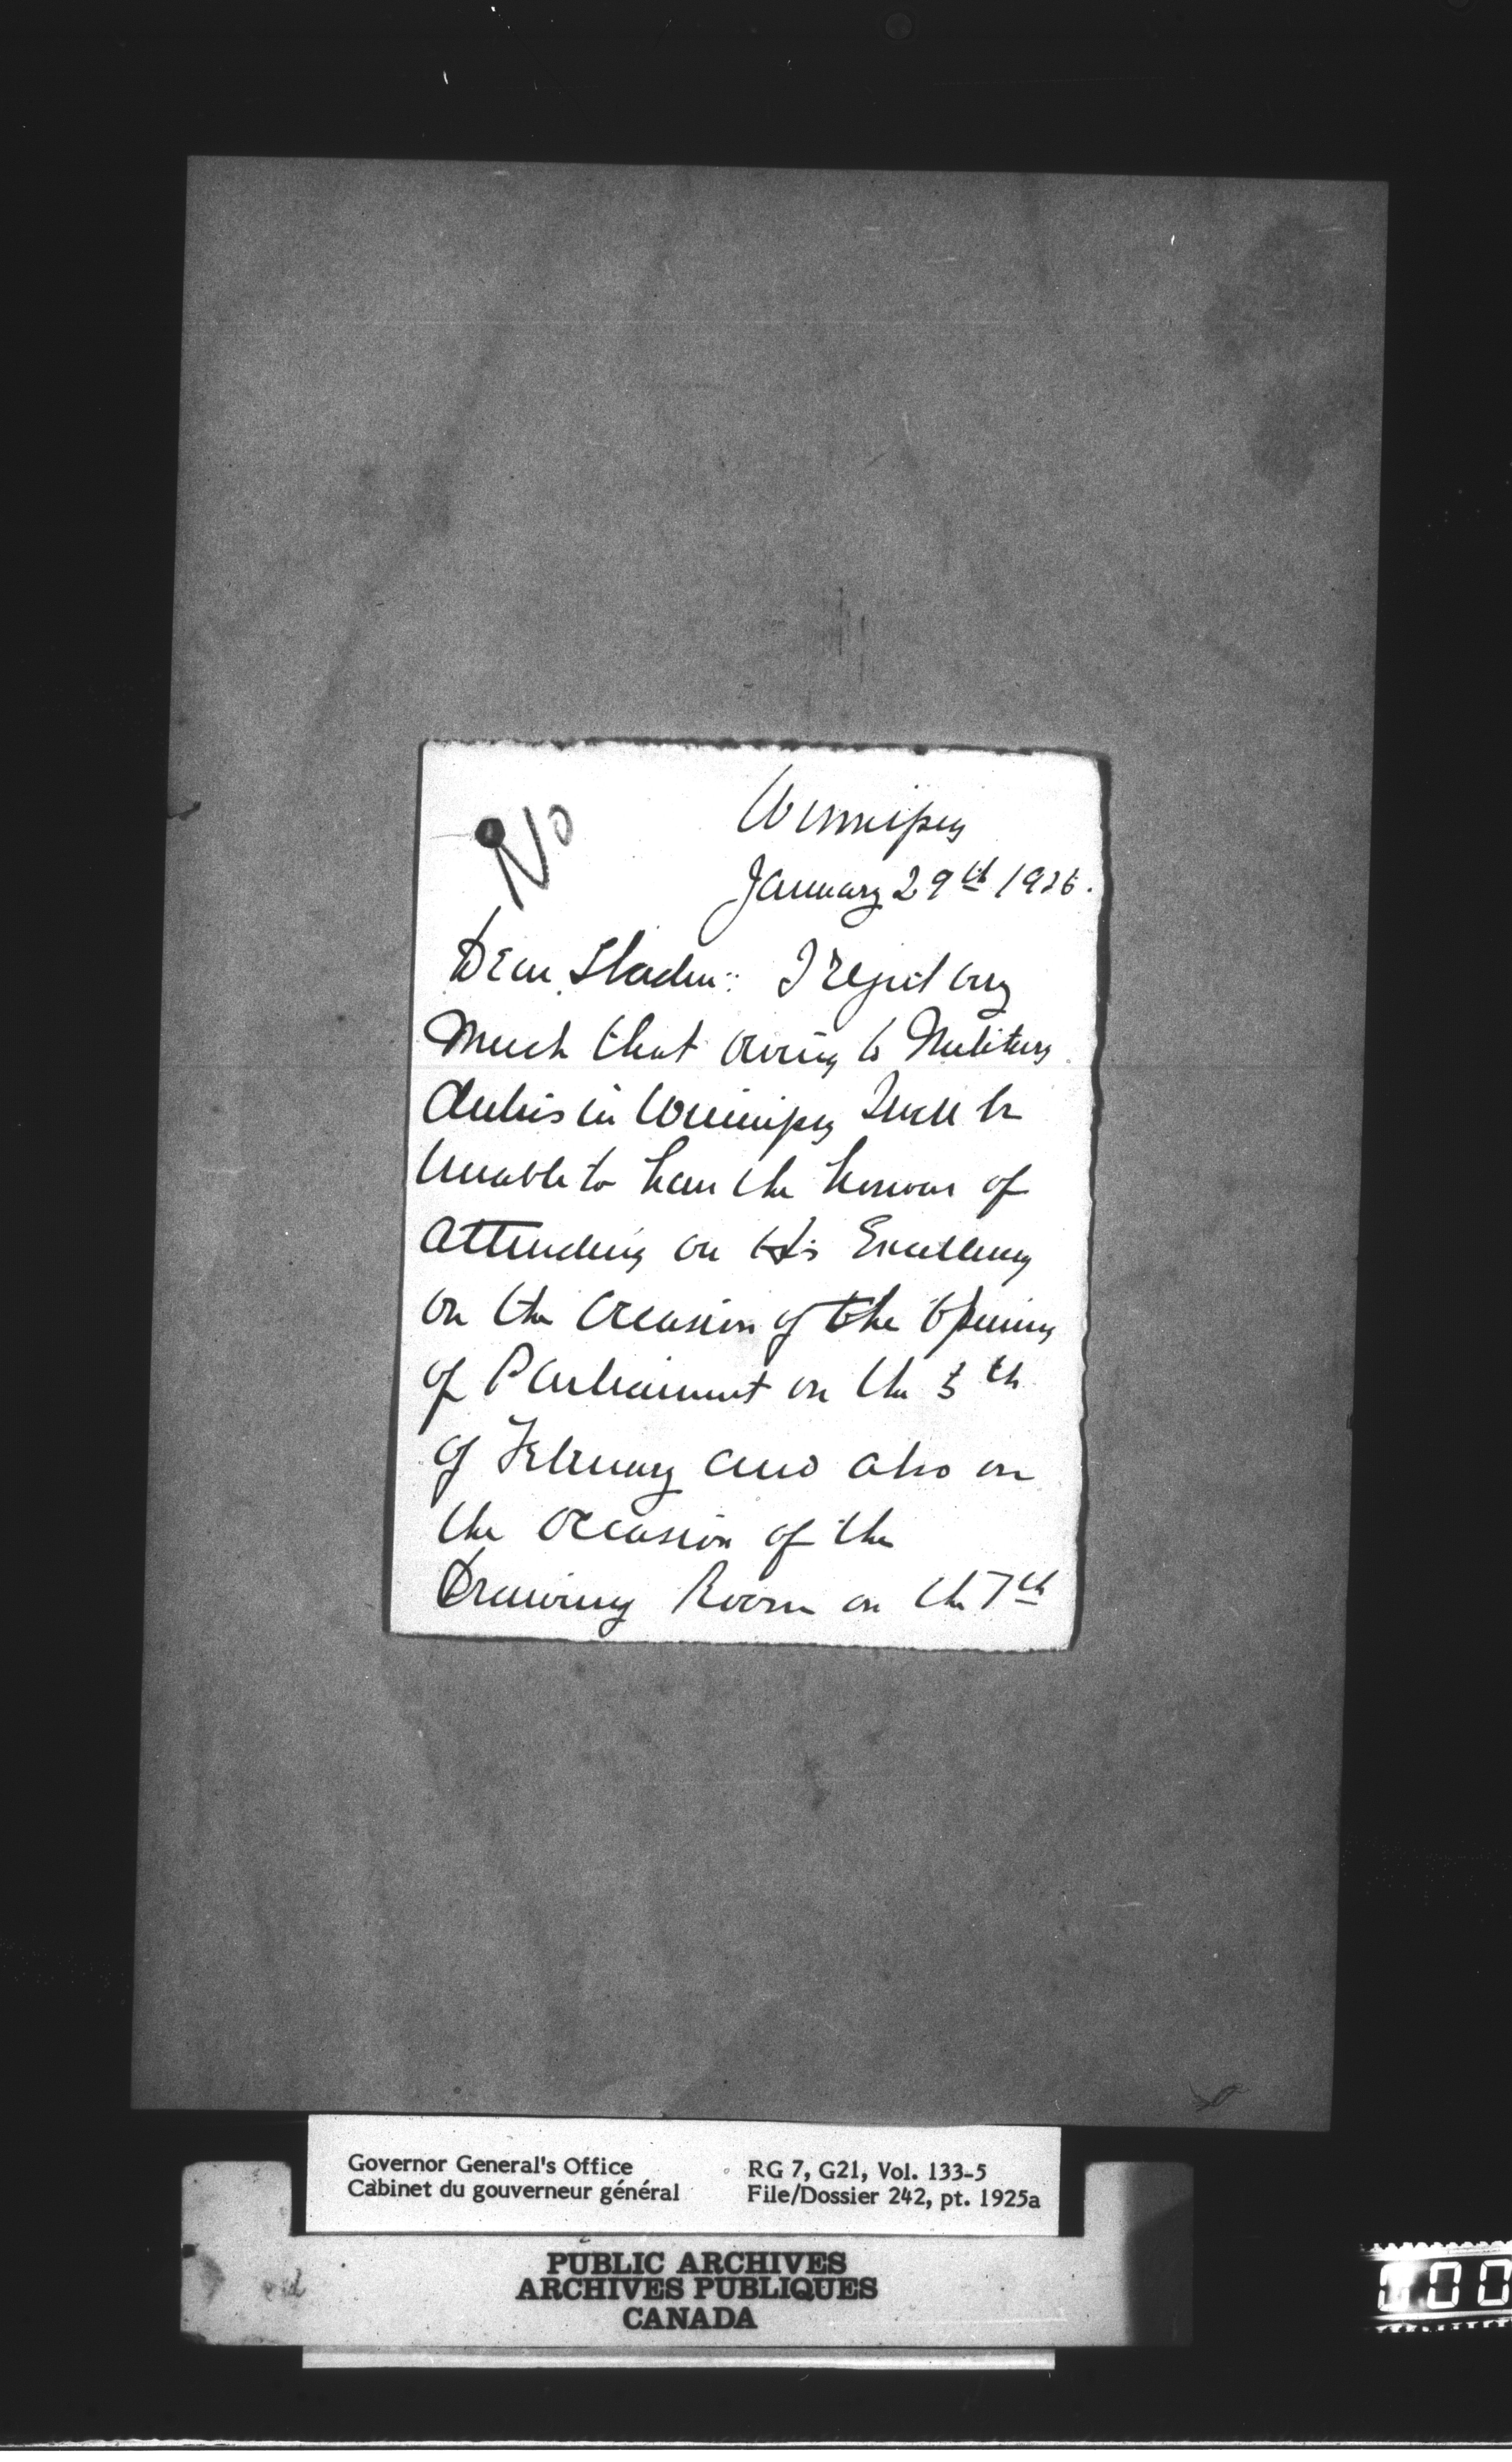 No
Winnipeg
January 29th 1925.
Dear Sladen: I regret very
much that owing to Military
duties in Winnipeg I will be
unable to have the honour of
attending on His Excellency
on the occasion of the opening
of Parliament on the 5th
of February and also on
the occasion of the
Drawing Room on the 7th
Governor General's Office
Cabinet du gouverneur général
RG 7, G21, Vol. 133-5
File/Dossier 242, pt. 1925a
PUBLIC ARCHIVES
ARCHIVES PUBLIQUES
CANADA